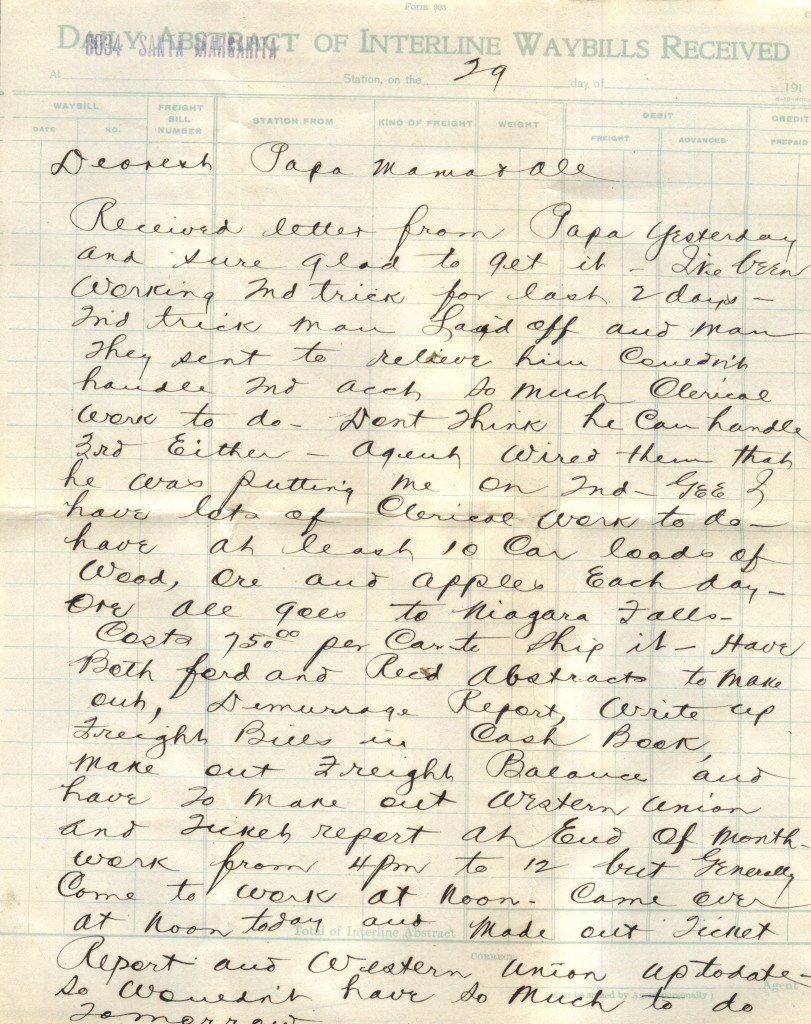 Form 992
DAILY ABSTRACT OF INTERLINE WAYBILLS RECEIVED
0034 SANTA MARGARITA
At Station, on the 29 day of 191
WAYBILL
FREIGHT BILL NUMBER
STATION FROM
KIND OF FREIGHT
WEIGHT
DEBIT
CREDIT
DATE
NO.
FREIGHT
ADVANCES
PREPAID
Dearest Papa Mama & Ole
Received letter from Papa Yesterday
and sure glad to get it - I've been
Working 2nd trick for last 2 days -
2nd trick man Laid off and man
They sent to relieve him Couldn't
handle 2nd acct so much Clerical
work to do - Dont Think he Can handle
3rd Either - Agent Wired them that
he was putting me on 2nd - GEE I
have lots of Clerical work to do -
have at least 10 Car loads of
Wood, ore and apples Each day -
Ore all goes to Niagara Falls -
Costs 750 00 per Car to Ship it - Have
Both ford and Recd Abstracts to make
out, Demurrage Report, Write up
Freight Bills in Cash Book,
Make out Freight Balance and
have To make out Western Union
and Ticket report at End Of Month -
work from 4pm to 12 but Generally
Come to work at Noon - Came over
at Noon today and Made out Ticket
Total of Interline Abstract
CORRECT:
Report and Western Union up to date -
Agent
so Wouldn't have so Much to do
Tomorrow